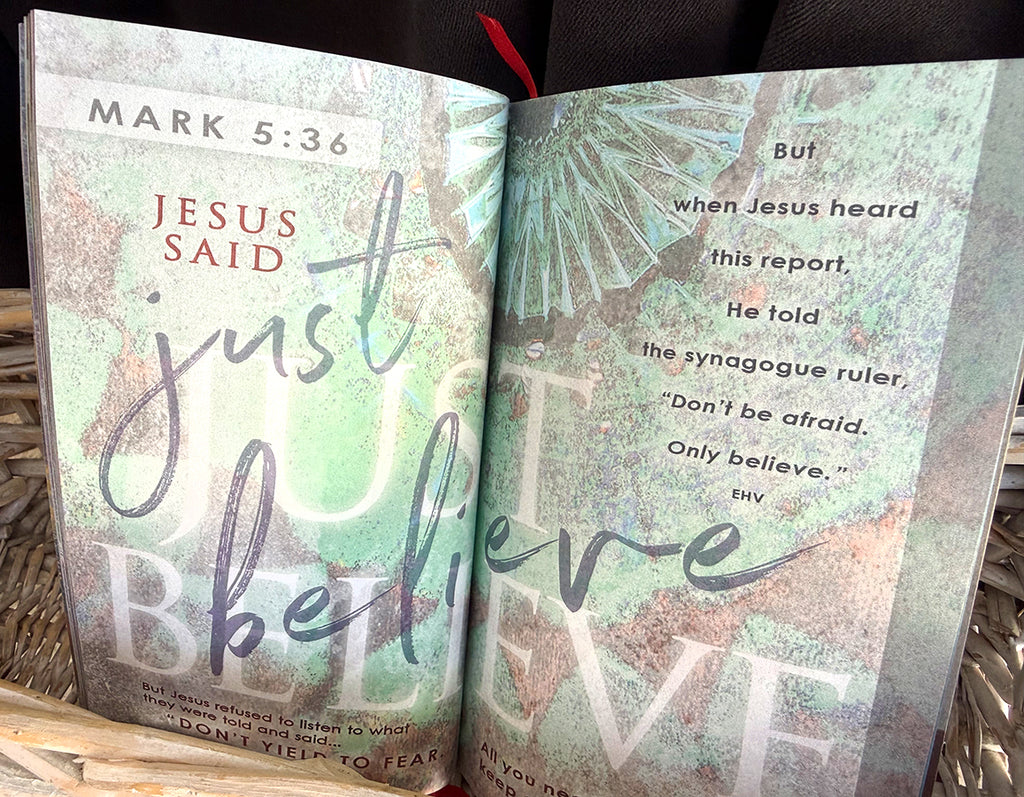 MARK 5:36
JESUS
SAID
just
believe
JUST
BELIEVE
But Jesus refused to listen to what
they were told and said...
"DON'T YIELD TO FEAR.
But
when Jesus heard
this report,
He told
the synagogue ruler,
"Don't be afraid.
Only believe."
EHV
All you
keep